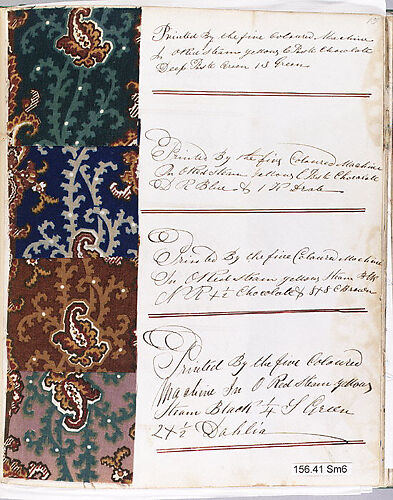 15
Printed By the fine Coloured Machine
In O Red Steam yellow C Pink Chocolate
Deep Pink Green 1 S Green
Printed By the five Coloured Machine
In O Red Steam yellow C Pink Chocolate
D R Blue & 1
Printed By the five Coloured Machine
In O Red Steam yellow Steam
4½ Chocolate & Brown
Printed By the five Coloured
Machine In O Red Steam yellow
Steam Black ¼ S Green
2+½ Dahlia
156.41 Sm6